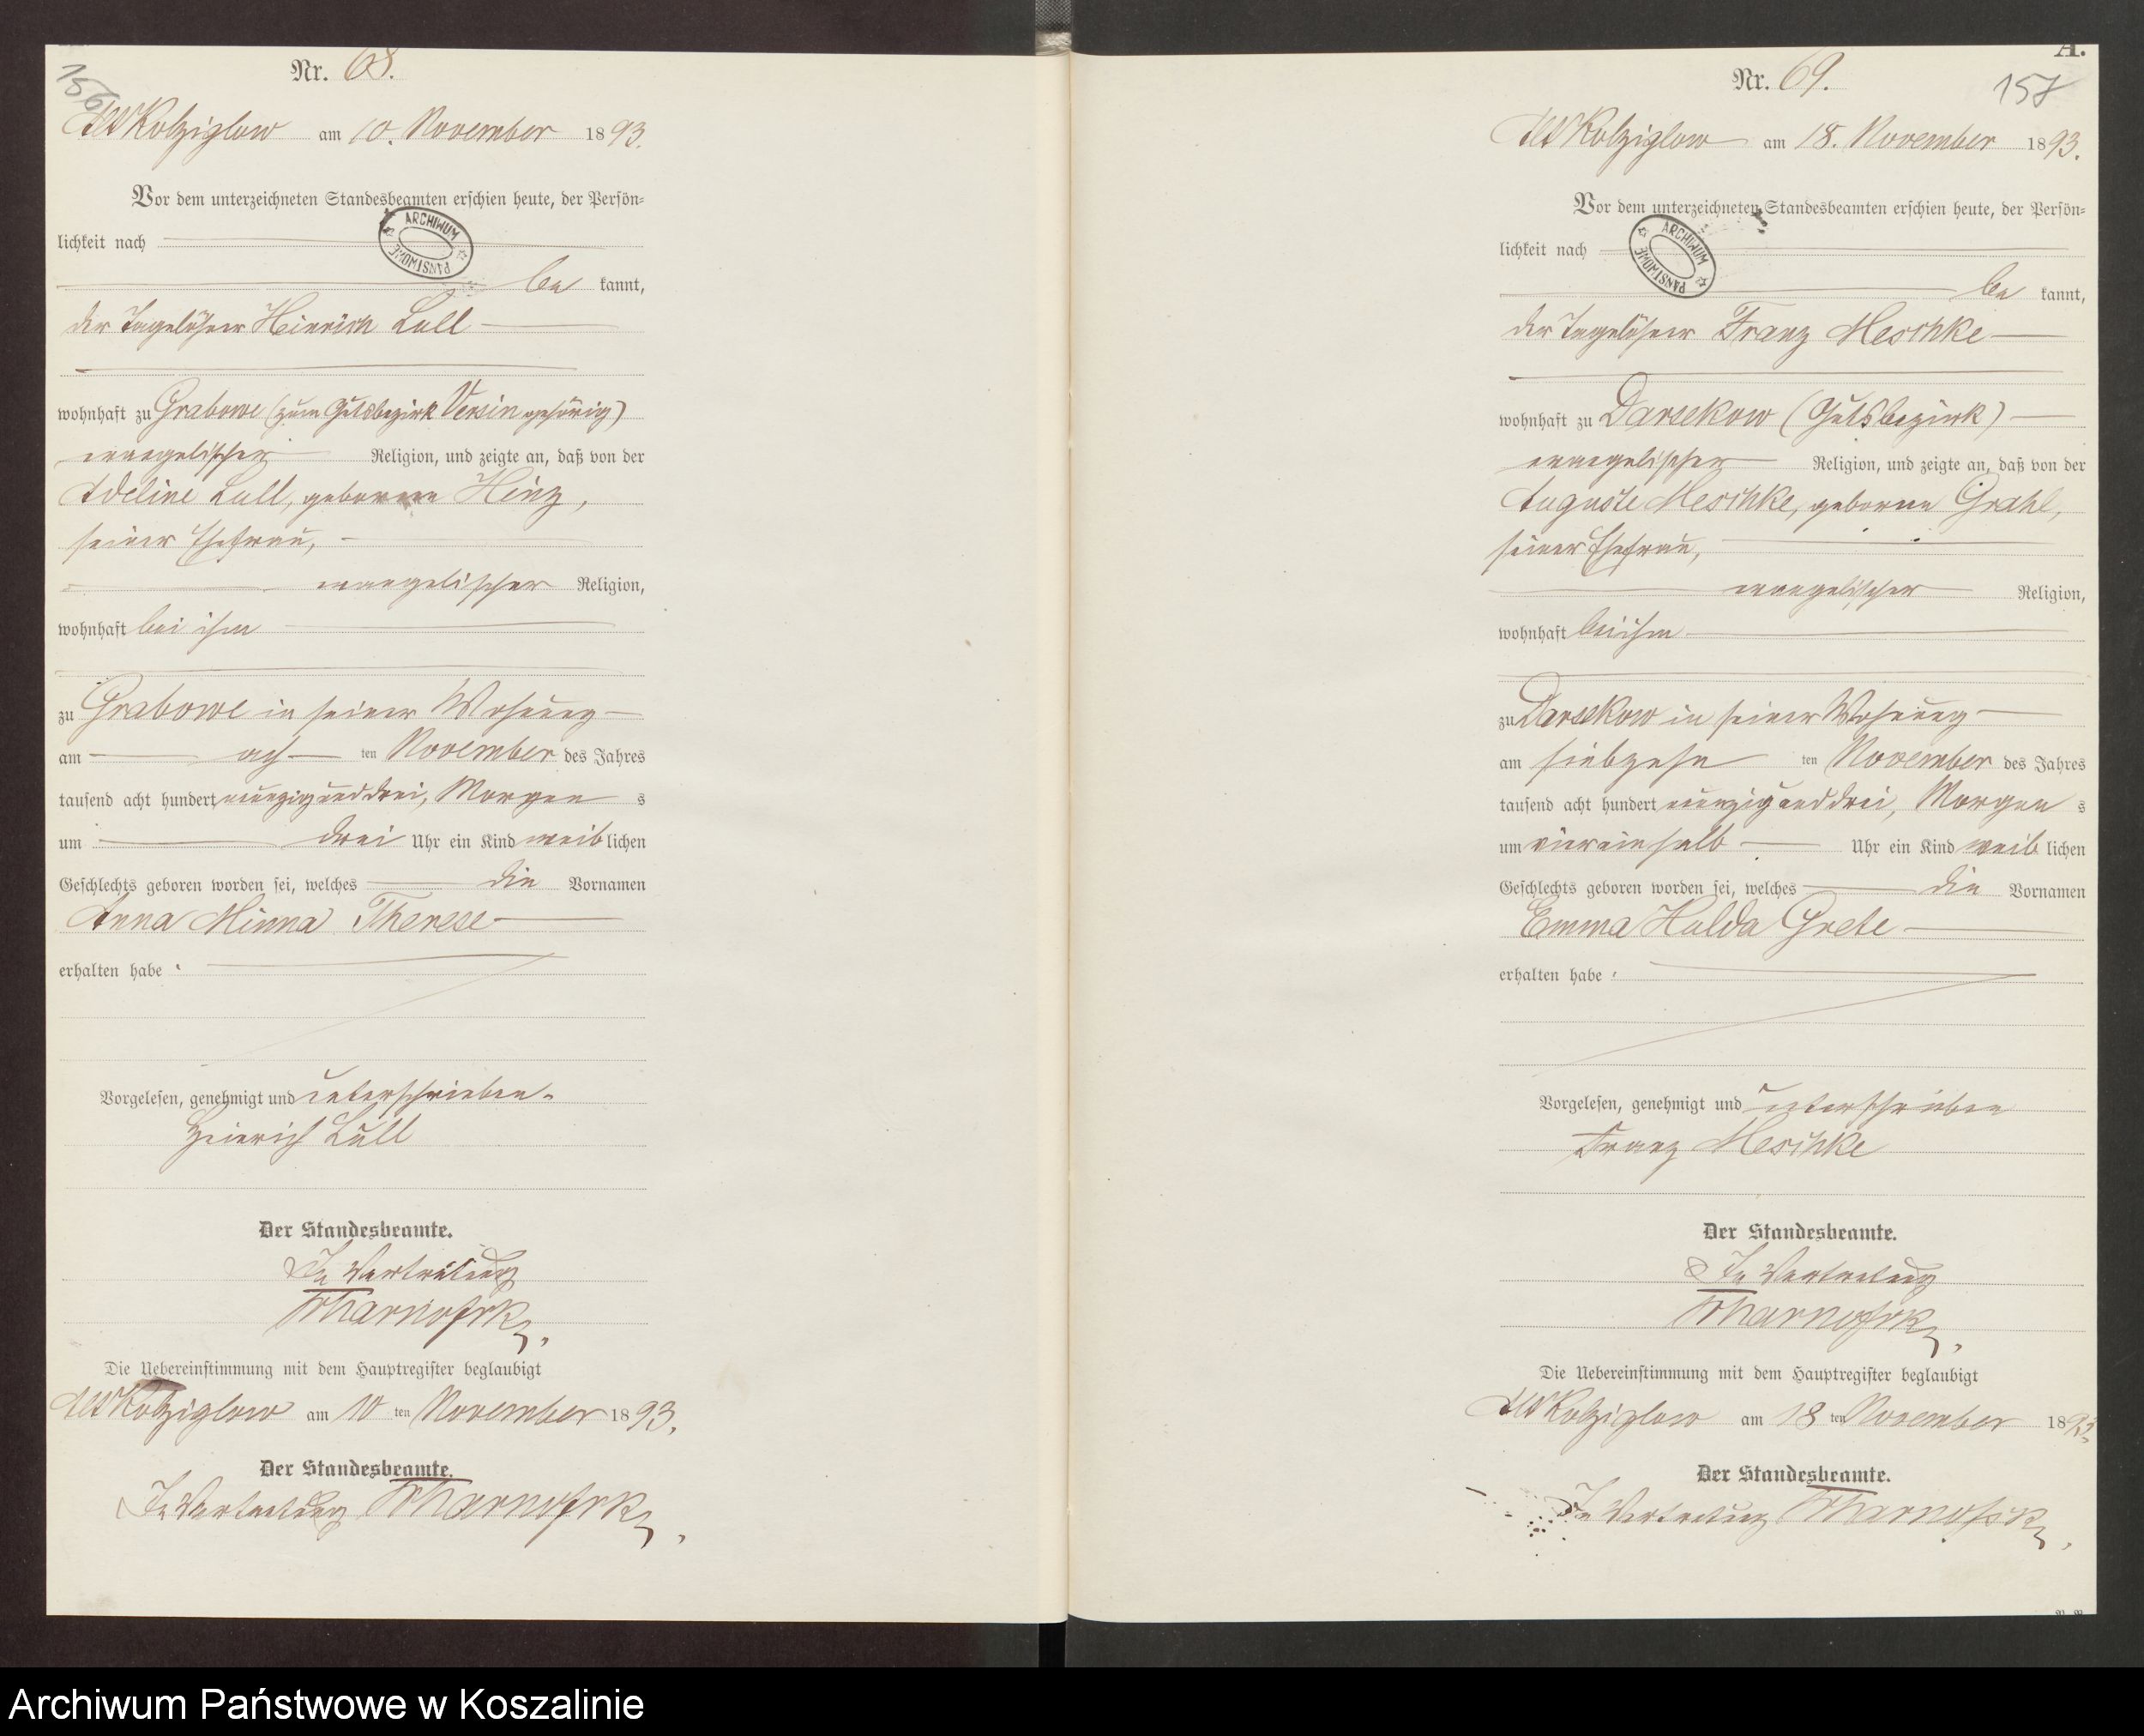 156
Nr. 68.
Alt Kolziglow am 10. November 1893.
Vor dem unterzeichneten Standesbeamten erschien heute, der Persön-
lichkeit nach
be kannt,
der Tagelöhner Heinrich Lull
wohnhaft zu Grabowe (zum Gutsbezirk Versin gehörig)
evangelischer Religion, und zeigte an, daß von der
Adeline Lull, geborene Hinz,
seiner Ehefrau,
evangelischer Religion,
wohnhaft bei ihm
zu Grabowe in seiner Wohnung
am ach ten November des Jahres
tausend acht hundert neunzig und drei, Morgen s
um drei Uhr ein Kind weib lichen
Geschlechts geboren worden sei, welches die Vornamen
Anna Minna Therese
erhalten habe.
Vorgelesen, genehmigt und unterschrieben.
Heinrich Lull
Der Standesbeamte.
In Vertretung
Die Uebereinstimmung mit dem Hauptregister beglaubigt
Alt Kolziglow am 10 ten November 1893.
Der Standesbeamte.
In Vertretung
ARCHIWUM PAŃSTWOWE
A.
157
Nr. 69.
Alt Kolziglow am 18. November 1893.
Vor dem unterzeichneten Standesbeamten erschien heute, der Persön-
lichkeit nach
be kannt,
der Tagelöhner Franz Meschke
wohnhaft zu Darsekow (Gutsbezirk)
evangelischer Religion, und zeigte an, daß von der
Auguste Meschke, geborene Grahl,
seiner Ehefrau,
evangelischer Religion,
wohnhaft bei ihm
zu Darsekow in seiner Wohnung
am siebzehn ten November des Jahres
tausend acht hundert neunzig und drei, Morgen s
um viereinhalb Uhr ein Kind weib lichen
Geschlechts geboren worden sei, welches die Vornamen
Emma Hulda Grete
erhalten habe.
Vorgelesen, genehmigt und unterschrieben
Franz Meschke
Der Standesbeamte.
In Vertretung
Die Uebereinstimmung mit dem Hauptregister beglaubigt
Alt Kolziglow am 18 ten November 1893.
Der Standesbeamte.
In Vertretung
ARCHIWUM PAŃSTWOWE
Archiwum Państwowe w Koszalinie